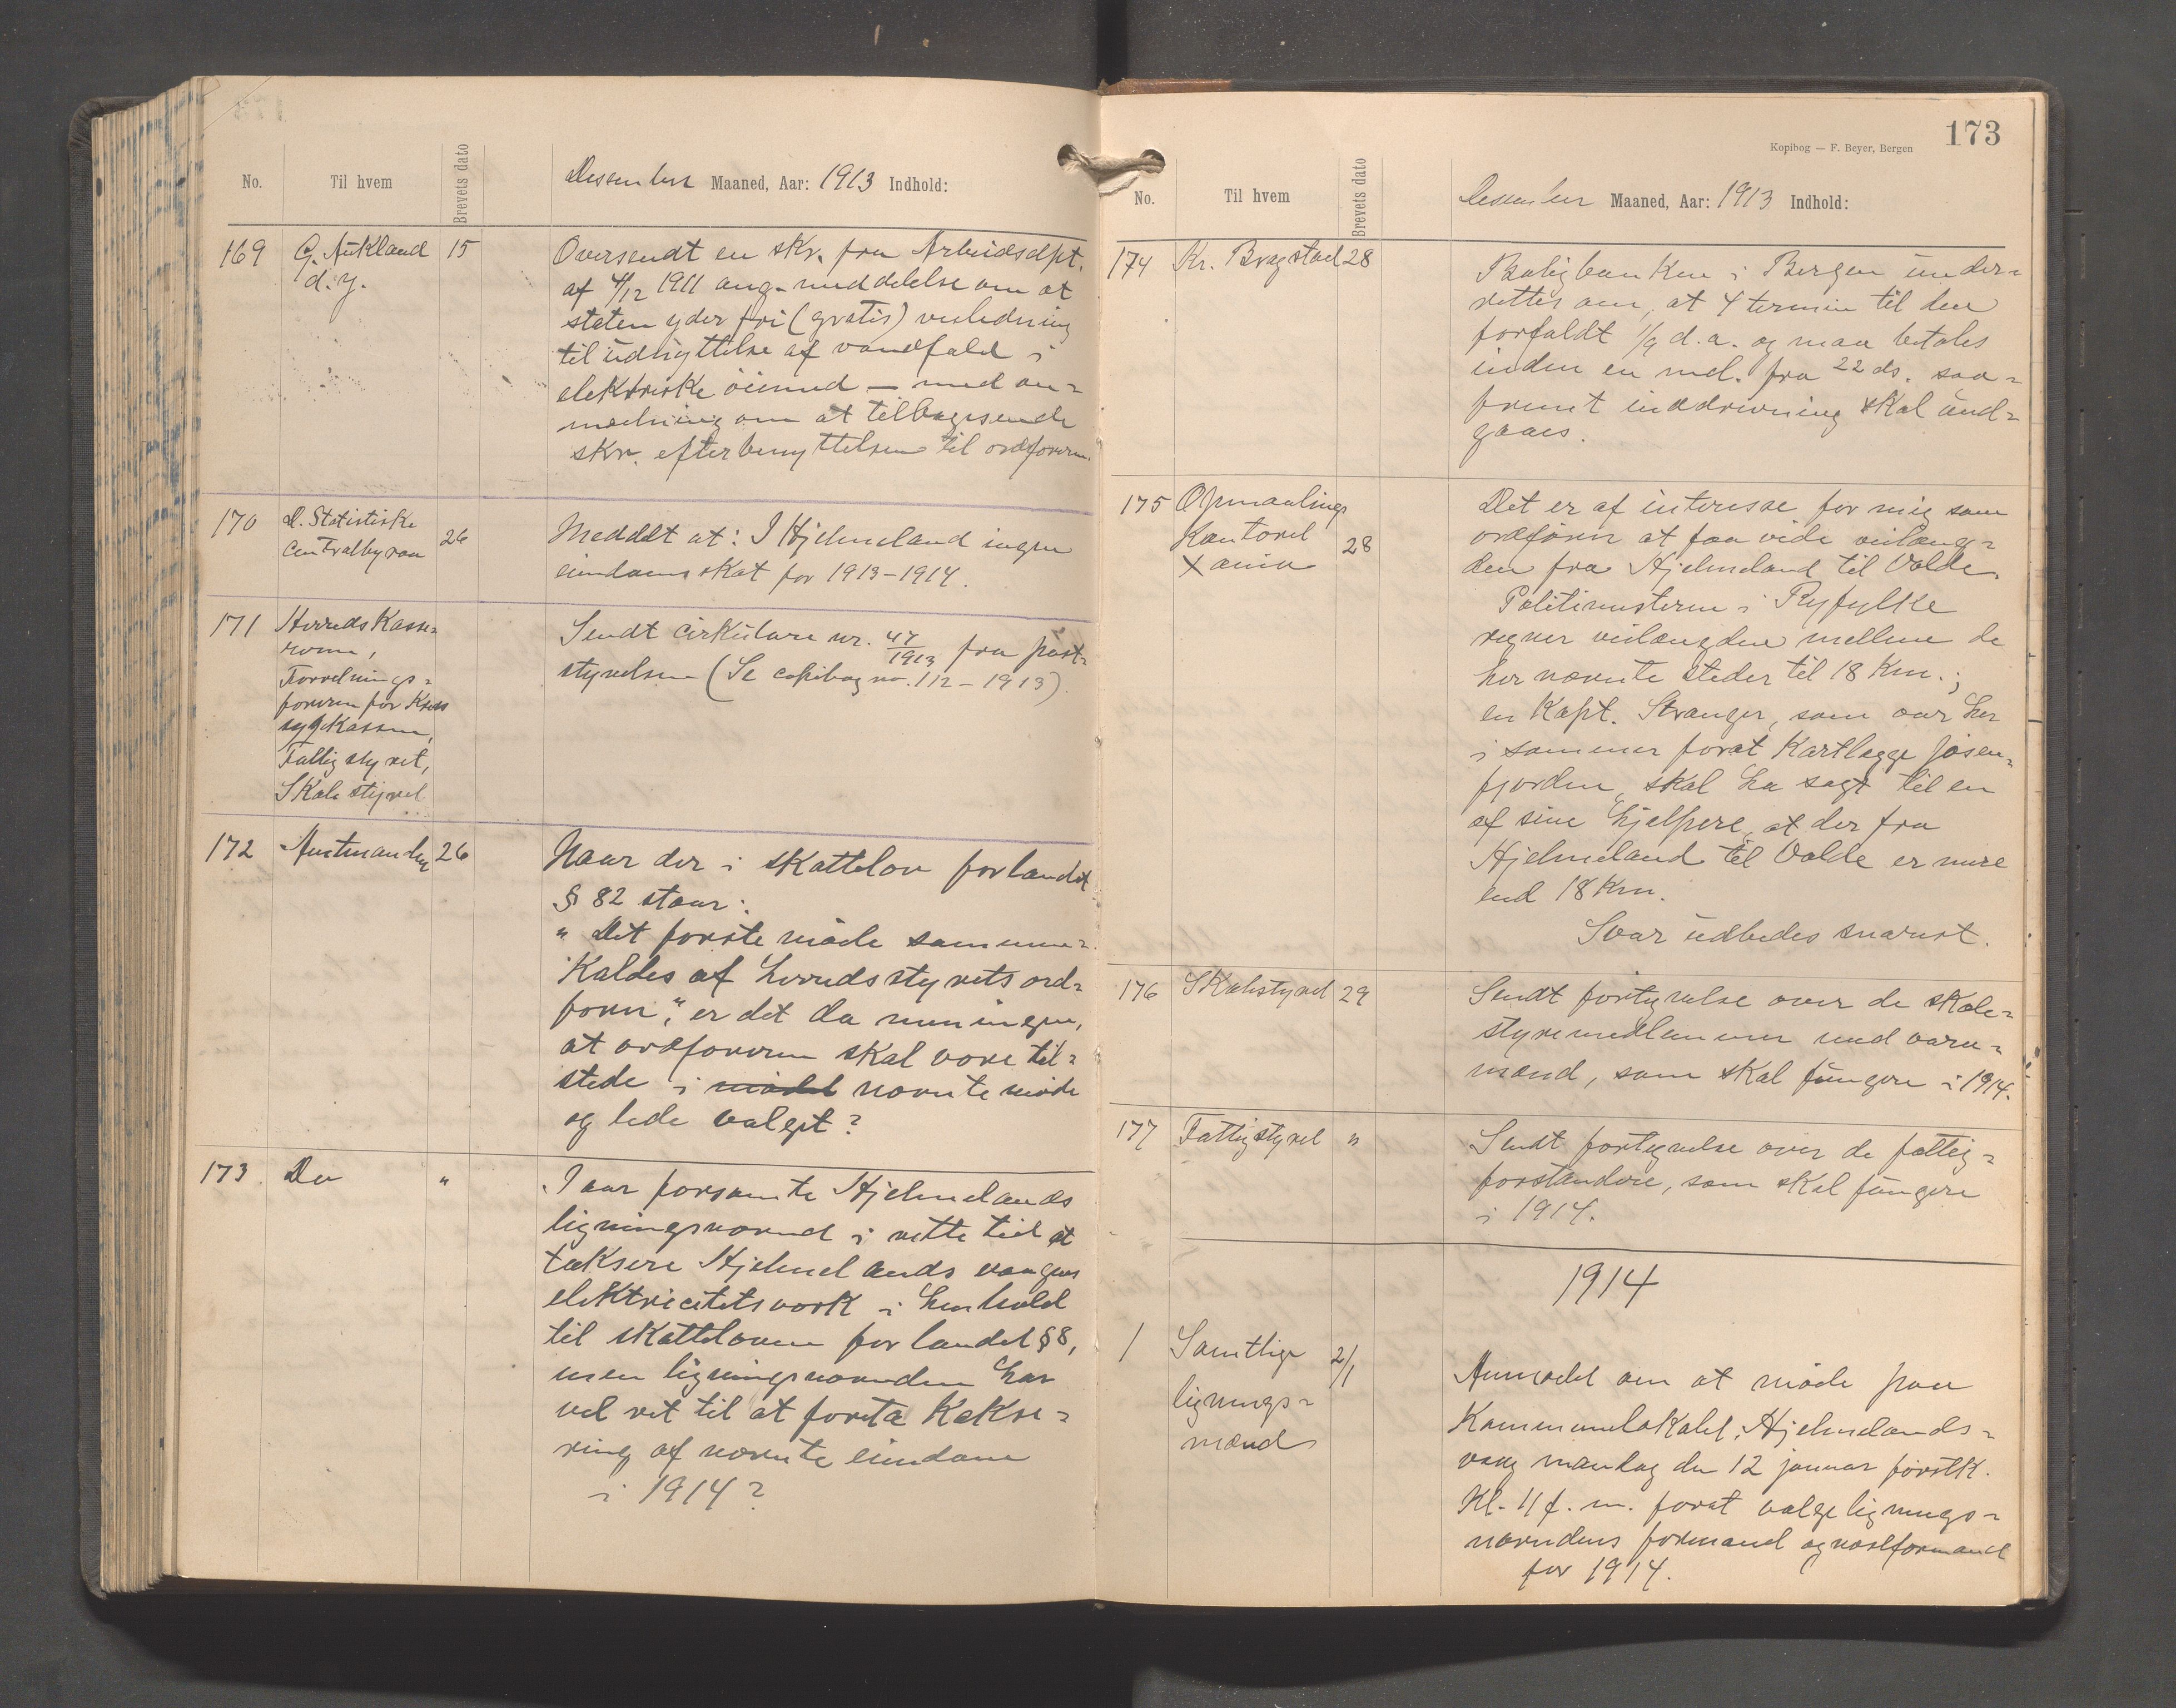 No.
Til hvem
Brevets dato
Dessember Maaned, Aar: 1913 Indhold:
169 G. Aukland 15
d. y.
Oversendt en skr. fra Arbeidsdpt.
af 4/12 1911 ang. meddelelse om at
staten yder fri (gratis) veiledning
til udnyttelse af vandfald i
elektriske øiemed — med an=
modning om at tilbagesende
skr. efter benyttelsen til ordføreren.
170 D. Statistiske
Centralbyraa 26
Meddelt at: I Hjelmeland ingen
eiendomsskat for 1913-1914.
171 Herredskasse=
reren,
Forretnings=
føreren for Kreds
sygekassen,
Fattigstyret,
Skolestyret
Sendt cirkulære nr. 47/1913 fra post=
styrelsen (Se copibog no. 112 - 1913)
172 Amtmanden 26
Naar der i skattelov for landet
§ 82 staar:
" Det første møde sammen=
kaldes af herredsstyrets ord=
fører", er det da meningen,
at ordføreren skal være til=
stede i mødet nævnte møde
og lede valget?
173. Do "
I aar forsømte Hjelmelands
ligningsnævnd i rette tid at
taksere Hjelmelands vaagens
elektricitetsværk i henhold
til skatteloven for landet § 8,
men ligningsnævnden har
vel ret til at foreta takse=
ring af nævnte eiendom
i 1914?
173
Kopibog — F. Beyer, Bergen
No.
Til hvem
Brevets dato
Dessember Maaned, Aar: 1913 Indhold:
174 Kr. Bragstad 28
Boligbanken i Bergen under=
rettes om, at 4 termin til den
forfaldt 1/9 d.a. og maa betales
inden en md. fra 22 ds. saa=
fremt inddrivning skal und=
gaaes.
175 Opmaalings
kontoret
Xania 28
Det er af interesse for mig som
ordfører at faa vide veilæng=
den fra Hjelmeland til Valde.
Politimesteren i Ryfylke
regner veilængden mellem de
her nævnte steder til 18 Km.;
en Kapt. Stranger, som var her
i sommer forat kartlægge Jøsen=
fjorden, skal ha sagt til en
af sine hjelpere, at der fra
Hjelmeland til Valde er mere
end 18 Km.
Svar udbedes snarest.
176 Skolestyret 29
Sendt fortegnelse over de skole=
styremedlemmer med vara=
mænd, som skal fungere i 1914.
177 Fattigstyret "
Sendt fortegnelse over de fattig=
forstandere, som skal fungere
i 1914.
1914
1 Samtlige 2/1
lignings=
mænd
Anmodet om at møde paa
Kommunelokalet, Hjelmelands=
vaag mandag den 12 januar førstk.
Kl. 11 f. m. forat vælge lignings=
nævndens formand og næstformand
for 1914.